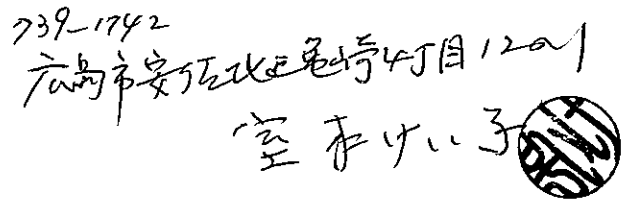 739-1742
広島市安佐北区亀崎4丁目12の1
空本けい子